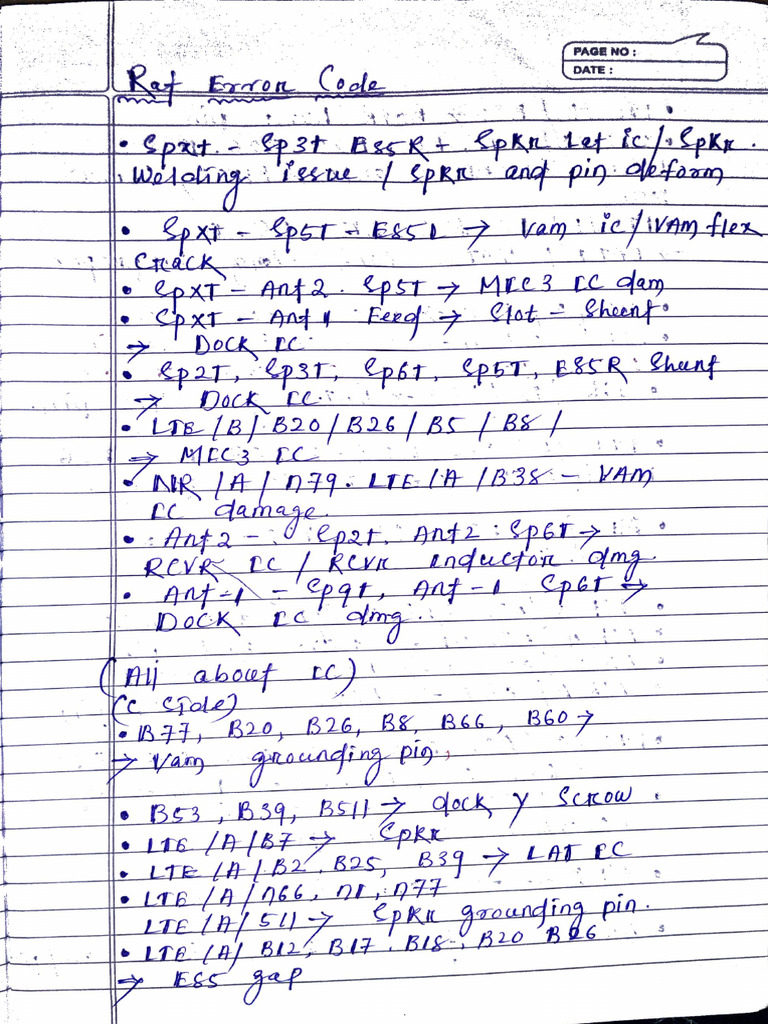 PAGE NO :
DATE :
Raf Error Code
• SpxT - Sp3T E85R + SpKR Lat ic / SpKR.
Welding issue / SpKR and pin deform
• SpXT - Sp5T - E851 → Vam ic / VAM flex
Crack
• SpXT - Ant 2. Sp5T → MIC3 IC dam
• SpXT - Ant 1 Feed → Slot - Sheenf
→ Dock IC
• Sp2T, Sp3T, Sp6T, Sp5T, E85R Sheenf
→ Dock IC
• LTE /B/ B20 / B26 / B5 / B8 /
→ MIC3 IC
• NR /A/ n79. LTE /A /B38 - VAM
IC damage.
• Ant 2 - Sp2t, Ant 2 : Sp6T →
RCVR IC / RCVR inductor dmg.
• Ant-1 - Sp9t, Ant-1 Sp6T →
DOCK IC dmg.
(All about IC)
(C side)
• B77, B20, B26, B8, B66, B60 →
→ Vam grounding pin.
• B53, B39, B511 → dock y Scrow.
• LTE /A/B7 → SpKR
• LTE /A/B2 B25, B39 → LAT IC
• LTE /A/ n66, n1, n77
LTE /A/ 511 → SpKR grounding pin.
• LTE /A/ B12, B17 B18, B20 B26
→ E85 gap